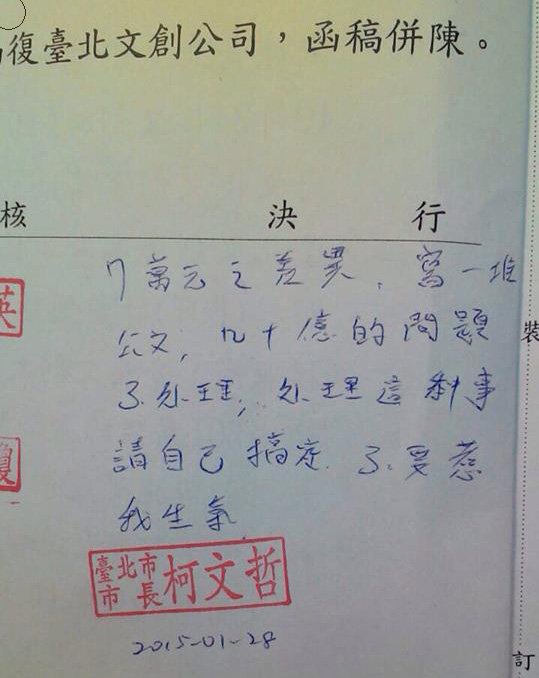 復臺北文創公司，函稿併陳。
核 決 行
7萬元之差異，寫一堆
公文，几十億的問題
不处理，处理這種事
請自己搞定，不要惹
我生氣
臺北市市長柯文哲
2015-01-28
英
裝
訂